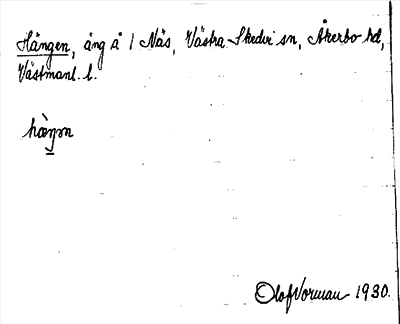 Hängen, äng å 1 Näs, Västra Skedvi sn, Åkerbo hd,
Västmanl. l.
hàŋən
Olof Vorman 1930.